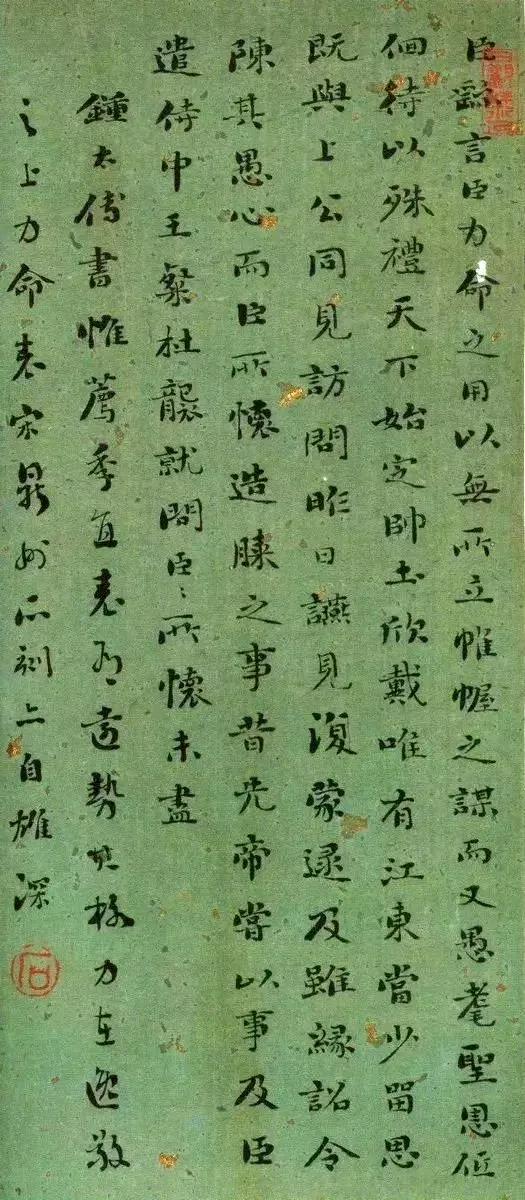 臣繇言臣力命之用以無所立帷幄之謀而又愚耄聖恩低
佪待以殊禮天下始定帥土欣戴唯有江東當少留思
既與上公同見訪問昨日讌見復蒙逮及雖緣詔令
陳其愚心而臣所懷造膝之事昔先帝嘗以事及臣
遣侍中王粲杜襲就問臣〻所懷未盡
鍾太傅書惟薦季直表有遠勢其核力在逸敬
之上力命表宋鼎州石刻亦自雄深